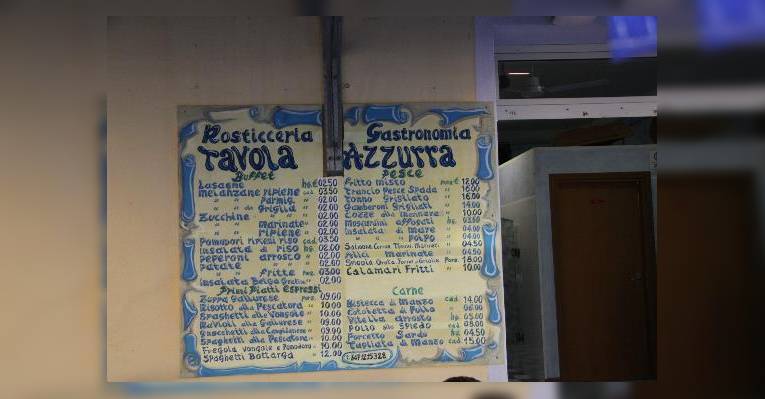 Rosticceria
Tavola
Buffet
Lasagne hg. € 02.50
Melanzane ripiene cad. 03.50
" " Parmig. " 02.00
" " da Griglia " 02.00
Zucchine " " 02.00
" Marinate " 02.00
" ripiene " 02.00
Pomodori ripieni riso cad. 03.50
Insalata di riso hg. 02.00
Peperoni arrosto " 02.00
Patate " " 02.00
" fritte Porz. 03.00
Insalata Belga Grolie hg. 02.00
Primi Piatti Espressi
Zuppa Gallurese Porz. 09.00
Risotto alla Pescatora " 10.00
Spaghetti alle Vongole " 10.00
Ravioli alla Gallurese " 09.00
Gnocchetti alla Campidanese " 09.00
Spaghetti alla Pescatora " 10.00
Fregola vongole e Pomodoro " 10.00
Spaghetti Bottarga " 12.00
Gastronomia
Azzurra
Pesce
Fritto misto Porz. € 12.00
Trancio Pesce Spada " 16.00
Tonno Grigliato " 16.00
Gamberoni Grigliati " 16.00
Cozze alla marinara " 10.00
Moscardini affogati hg. 03.50
Insalata di Mare " 04.00
" " Polpo " 04.00
04.50
Alici Marinate " 04.50
Porz. 18.00
Calamari Fritti " 10.00
Carne
Bistecca di Manzo cad. 14.00
Cotoletta di Pollo " 06.00
Vitella arrosto hg. 05.00
Pollo allo Spiedo cad. 08.00
Porcetto Sardo hg. 04.50
Tagliata di Manzo cad. 15.00